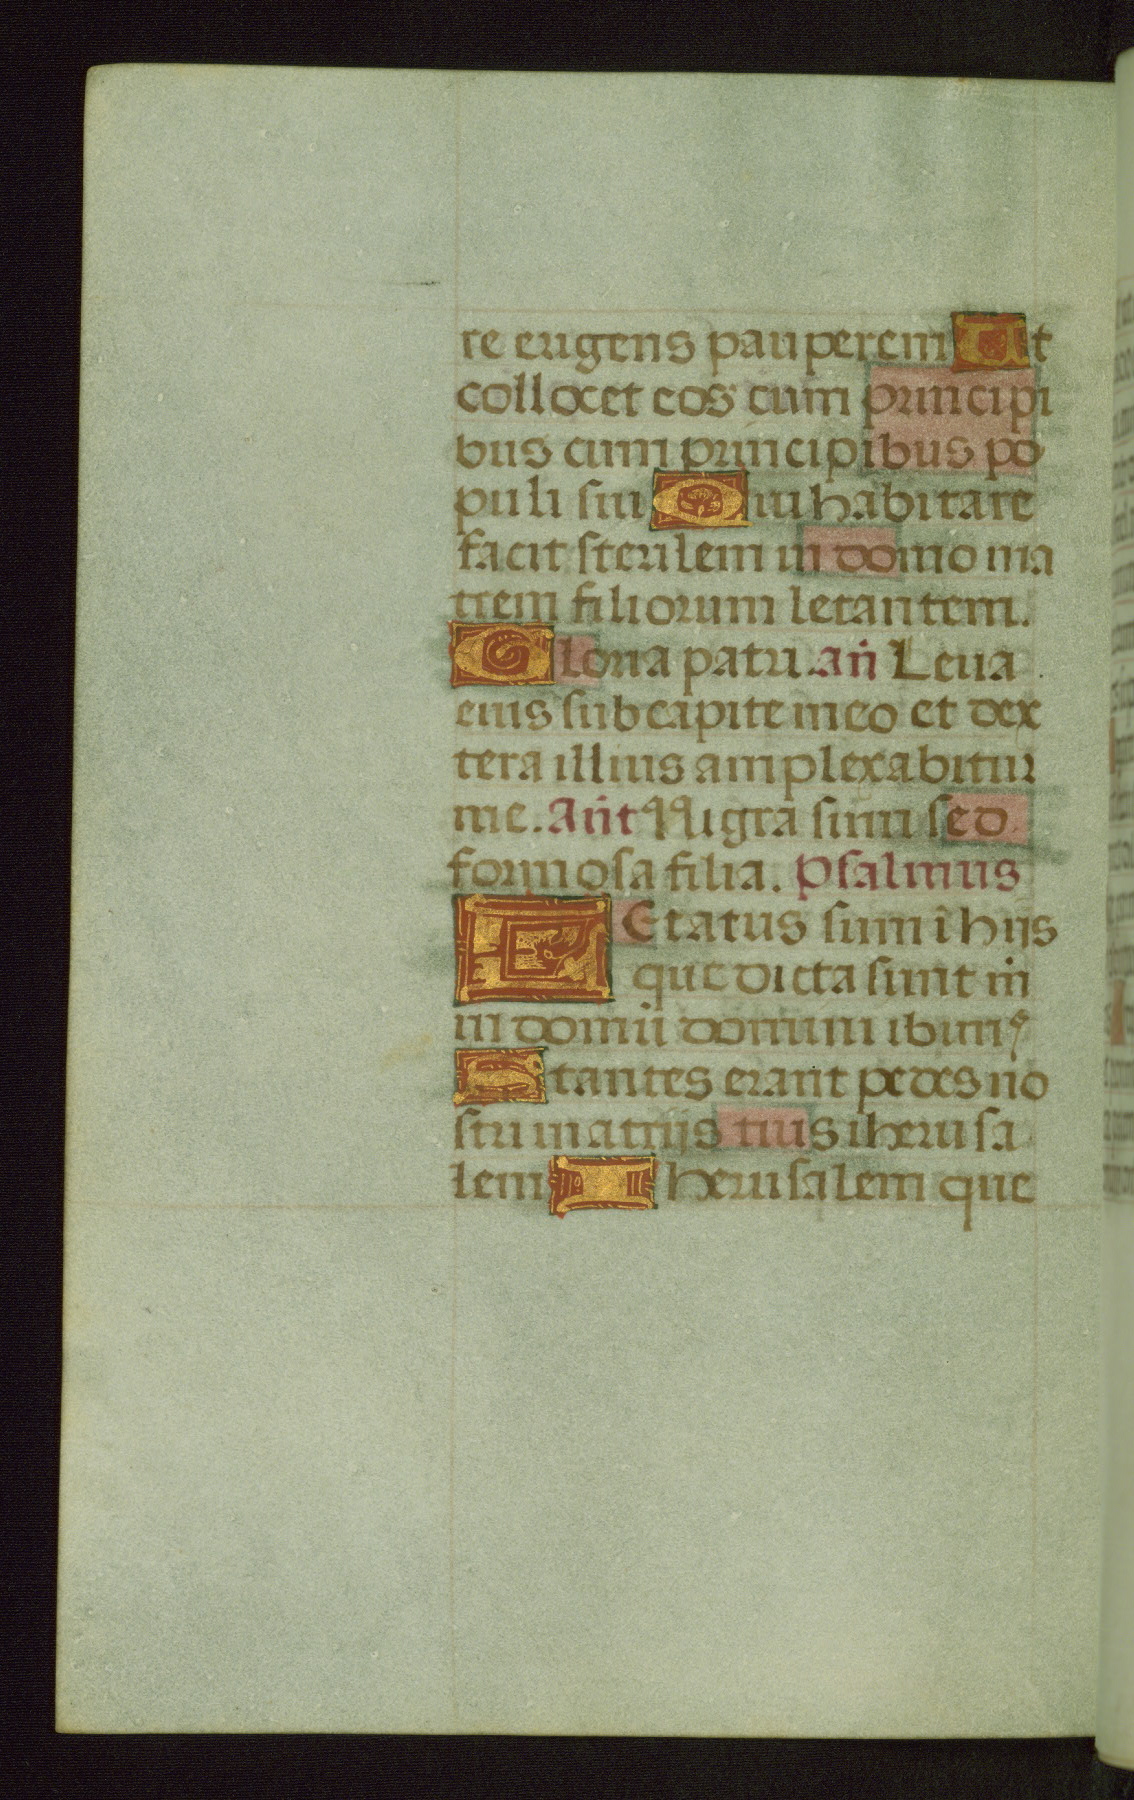 re erigens pauperem Ut
collocet eos cum principi
bus cum principibus po
puli sui Qui habitare
facit sterilem in domo ma
trem filiorum letantem.
Gloria patri. añ Leua
eius sub capite meo et dex
tera illius amplexabitur
me. Añt Nigra sum sed
formosa filia. Psalmus
LEtatus sum ī hijs
que dicta sunt m̄
in domū domini ibimꝰ
Stantes erant pedes no
stri in atrijs tuis iherusa
lem Iherusalem que